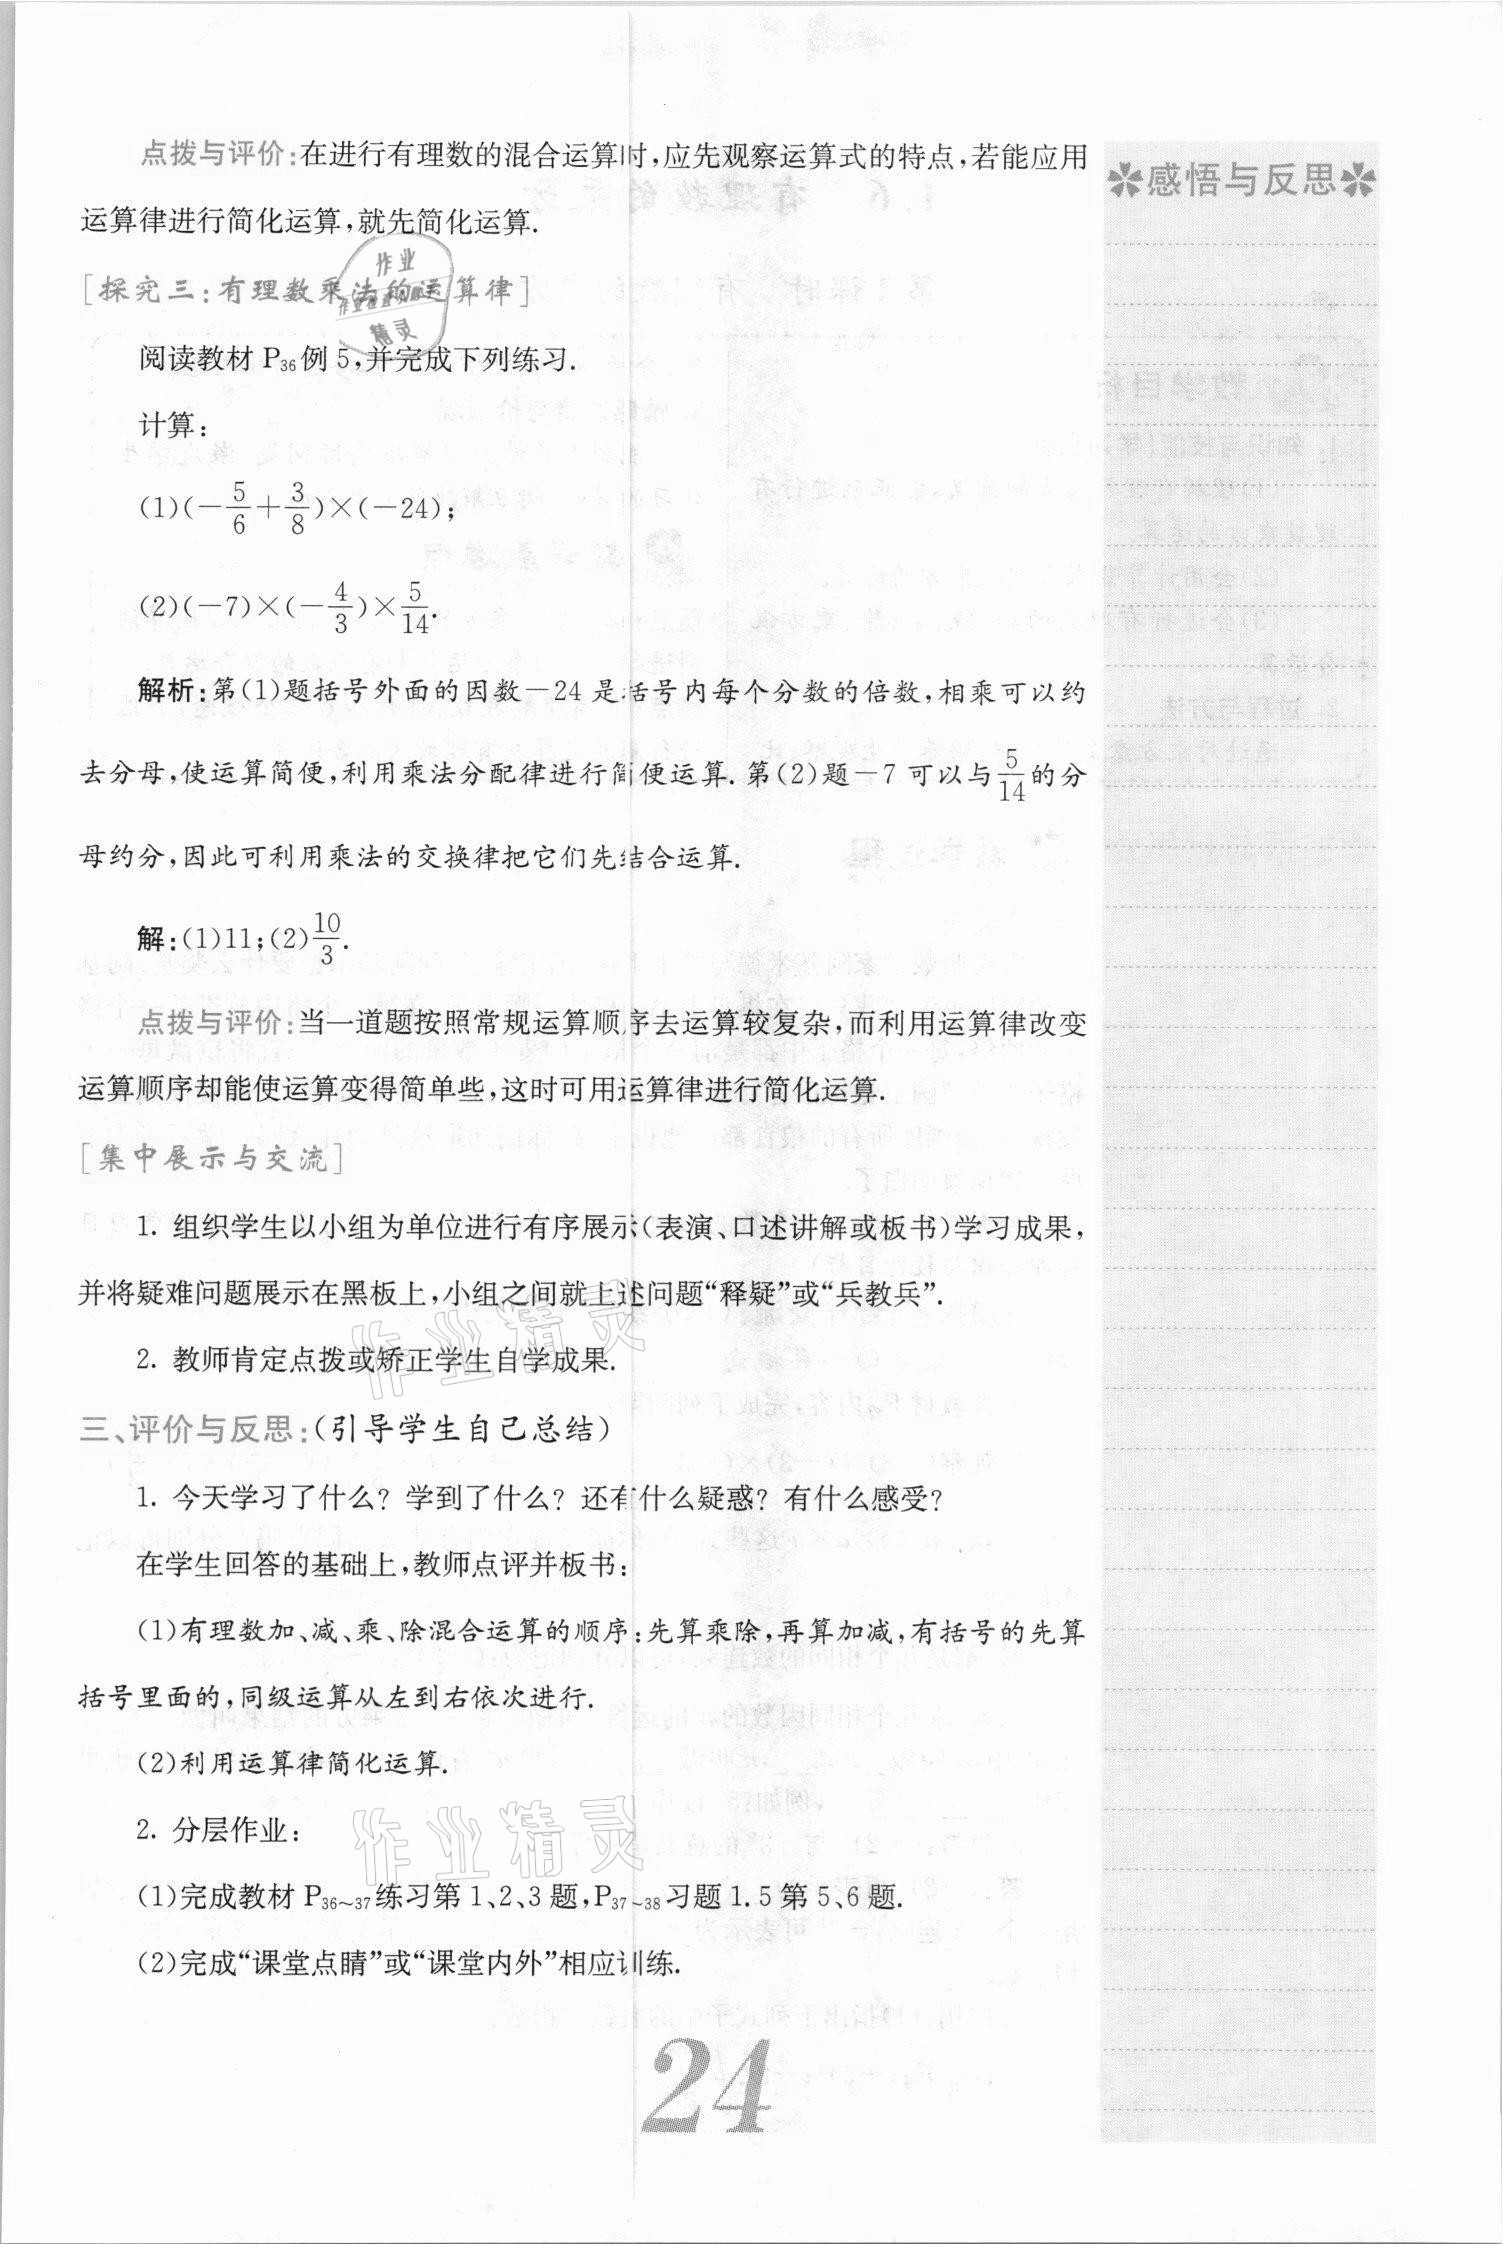 点拨与评价:在进行有理数的混合运算时,应先观察运算式的特点,若能应用
运算律进行简化运算,就先简化运算.
[探究三:有理数乘法的运算律]
阅读教材 P36例 5,并完成下列练习.
计算:
(1)(-5/6+3/8)×(-24);
(2)(-7)×(-4/3)×5/14.
解析:第(1)题括号外面的因数-24 是括号内每个分数的倍数,相乘可以约
去分母,使运算简便,利用乘法分配律进行简便运算. 第(2)题-7 可以与5/14的分
母约分,因此可利用乘法的交换律把它们先结合运算.
解:(1)11;(2)10/3.
点拨与评价:当一道题按照常规运算顺序去运算较复杂,而利用运算律改变
运算顺序却能使运算变得简单些,这时可用运算律进行简化运算.
[集中展示与交流]
1. 组织学生以小组为单位进行有序展示(表演、口述讲解或板书)学习成果,
并将疑难问题展示在黑板上,小组之间就上述问题“释疑”或“兵教兵”.
2. 教师肯定点拨或矫正学生自学成果.
三、评价与反思:(引导学生自己总结)
1. 今天学习了什么? 学到了什么? 还有什么疑惑? 有什么感受?
在学生回答的基础上,教师点评并板书:
(1)有理数加、减、乘、除混合运算的顺序:先算乘除,再算加减,有括号的先算
括号里面的,同级运算从左到右依次进行.
(2)利用运算律简化运算.
2. 分层作业:
(1)完成教材 P36~37练习第 1、2、3 题,P37~38习题 1.5 第 5、6 题.
(2)完成“课堂点睛”或“课堂内外”相应训练.
24
感悟与反思
作业
精灵
作业精灵
作业精灵